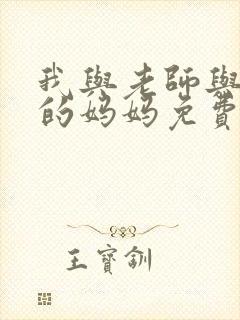 我與老師與
的媽媽免費
王寶釧